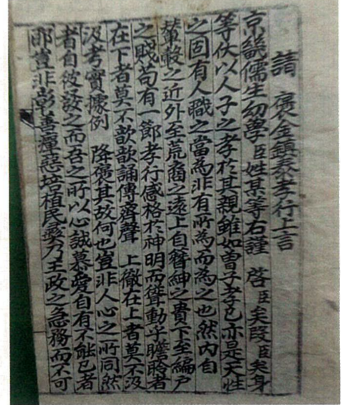 請 褒金鎮泰孝行上言
京畿儒生幼學臣姓某等右謹 啓臣矣段臣矣身
等伏以人子之孝於其親雖如曾子孝已亦是天性
之固有人職之當為非有所為而為之也然內自
輦轂之近外至荒裔之遠上自簪紳之貴下至編戶
之賤苟有 節孝行感格於神明而聳動乎瞻聆者
在下者莫不歆歎誦傳齊聲 上徹在上者莫不汲
汲考實據例 降褒其故何也豈非人心之所同然
者自彼發之而召之所以心誠慕愛自有不能已者
耶豈非彰善癉惡培植民彛乃王政之急務而不可